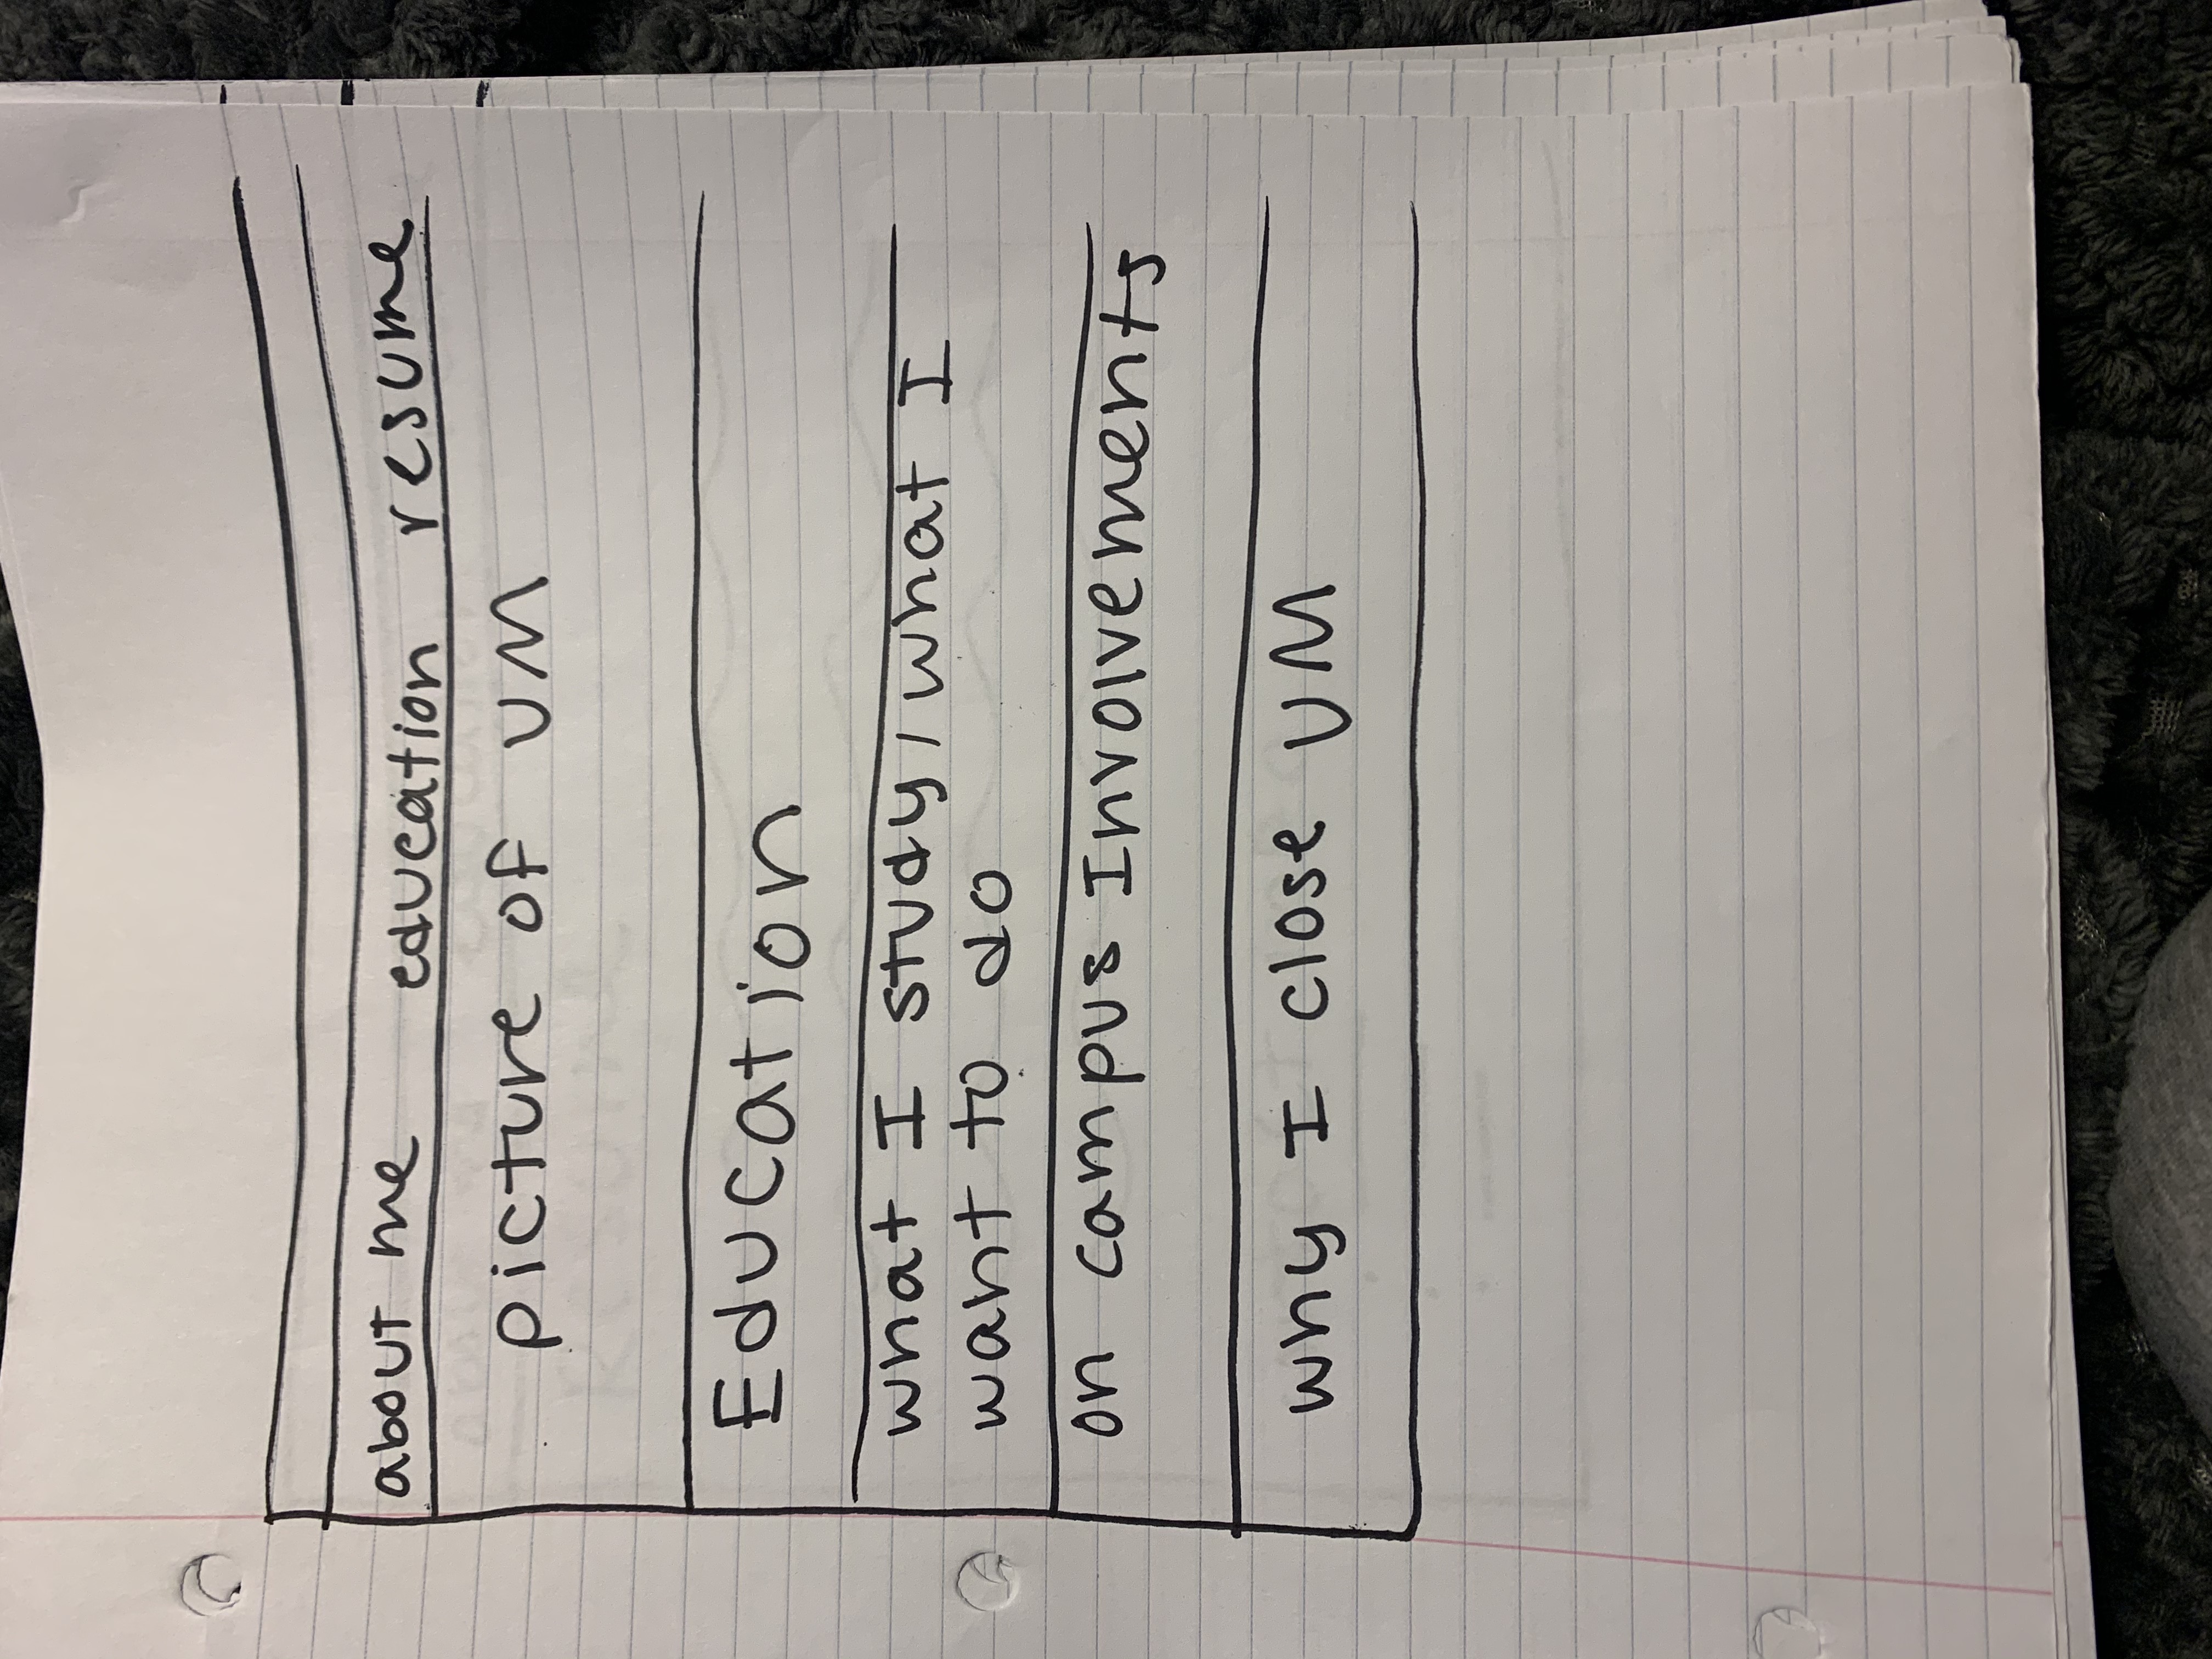 about me education resume
picture of UM
Education
what I study, what I
want to do
on campus Involvements
why I close UM